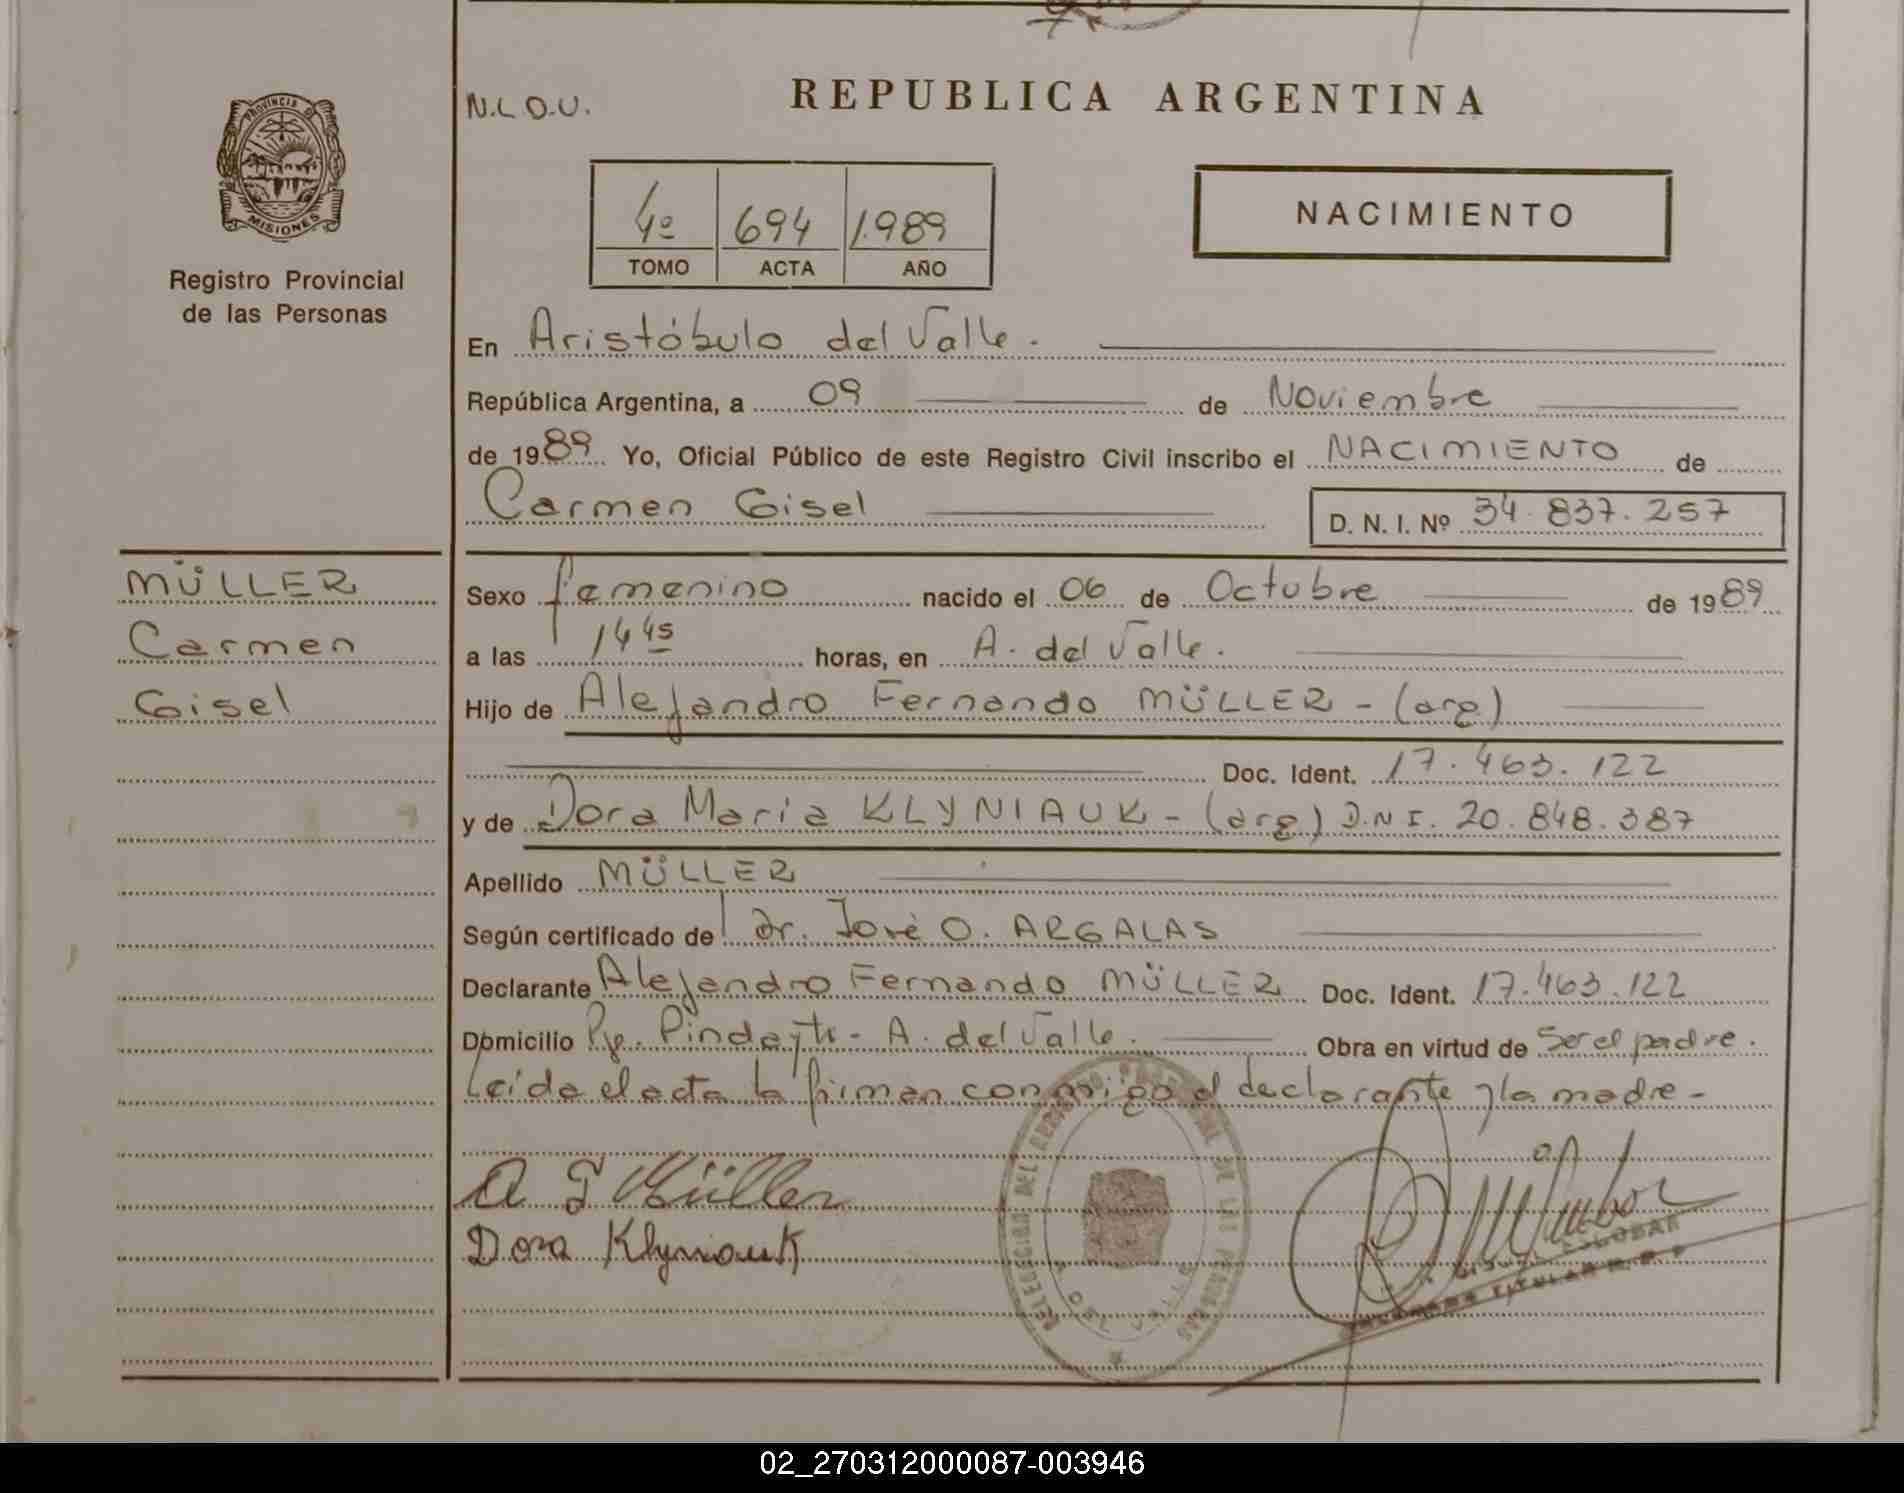 PROVINCIA DE
MISIONES
Registro Provincial
de las Personas
MÜLLER
Carmen
Gisel
N.L.O.U.
REPUBLICA ARGENTINA
4º 694 1.989
TOMO ACTA AÑO
NACIMIENTO
En Aristóbulo del Valle.
República Argentina, a 09 de Noviembre
de 1989 Yo, Oficial Público de este Registro Civil inscribo el NACIMIENTO de
Carmen Gisel D. N. I. Nº 34.837.257
Sexo femenino nacido el 06 de Octubre de 1989
a las 14 45 horas, en A. del Valle.
Hijo de Alejandro Fernando MÜLLER - (arg)
Doc. Ident. 17.463.122
y de Dora Maria KLYNIAUK - (arg) D.N.I. 20.848.387
Apellido MÜLLER
Según certificado de Dr. José O. ARGALAS
Declarante Alejandro Fernando MÜLLER Doc. Ident. 17.463.122
Domicilio Pje. Pindayti - A. del Valle. Obra en virtud de Ser el padre.
Leida el acta la firman conmigo el declarante y la madre -
A F Müller
Dora Klyniauk
ESCOBAR
TITULAR R. P. P
02_270312000087-003946